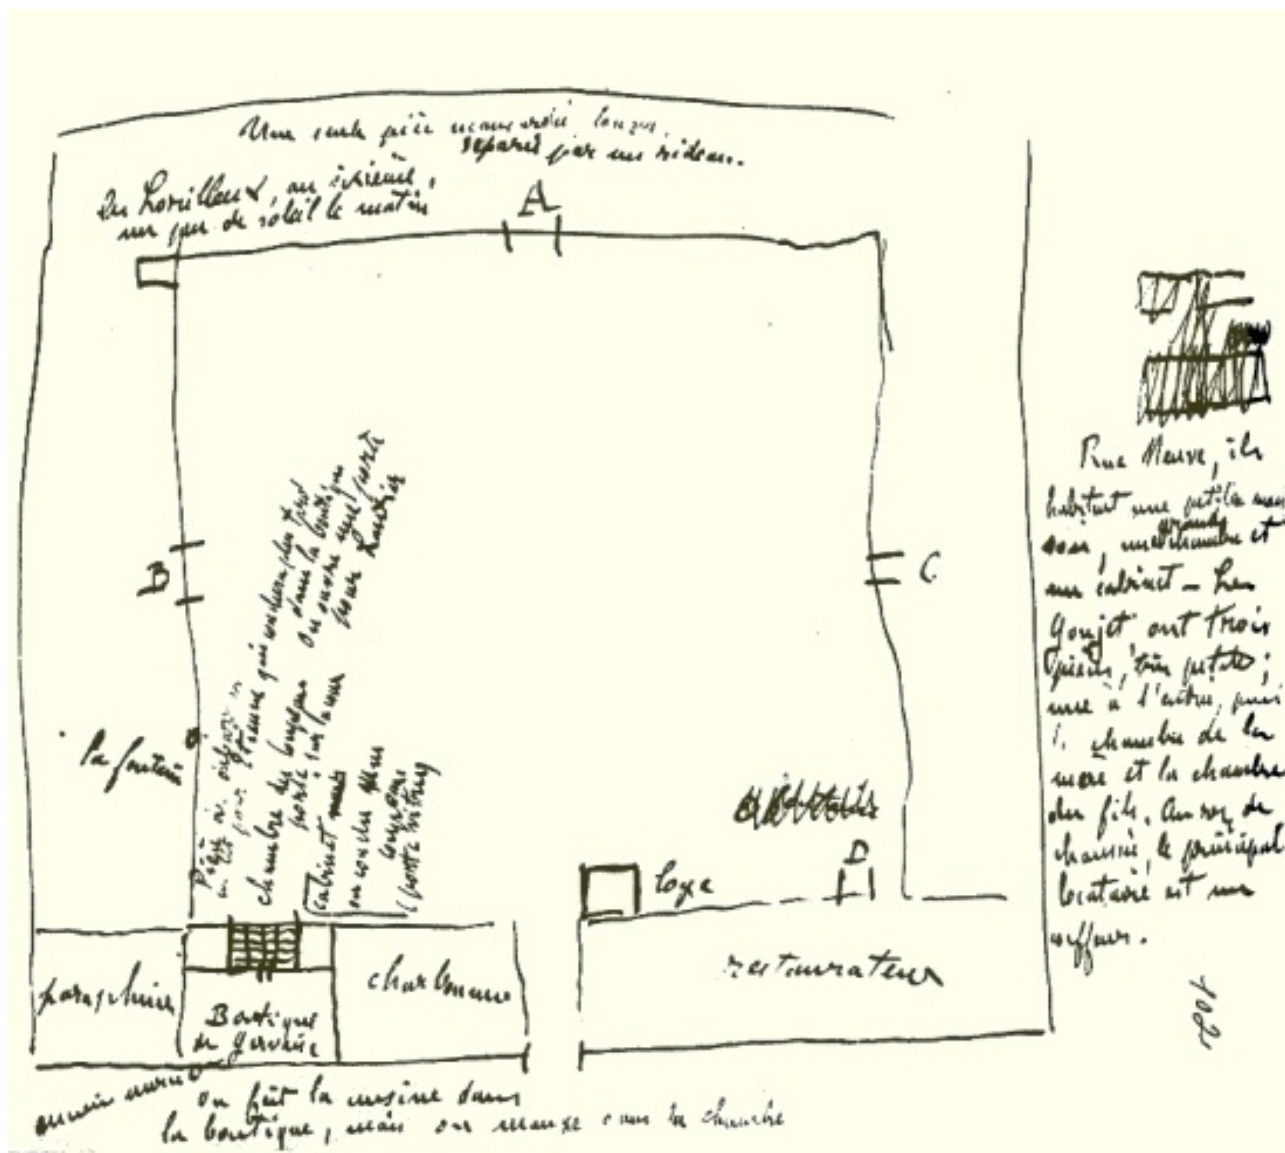 Une seule pièce mansardée longue,
séparée par un rideau.
Les Lorilleux, au sixième,
un peu de soleil le matin
A
B
C
D
la fontaine
chambre des
porte sur la cour
cabinet
dans la boutique
on ouvre une porte
pour Lantier
loge
restaurateur
parapluies
Boutique
de Gervaise
charbonnier
on fait la cuisine dans
la boutique, mais on mange dans la chambre
Rue Neuve, ils
habitent une petite mai
son, une grande chambre et
un cabinet – Les
Goujet ont trois
pièces, très petites ;
une à l'entrée, puis
la chambre de la
mère et la chambre
du fils. Au rez de
chaussée, le principal
locataire est un
coiffeur.
108